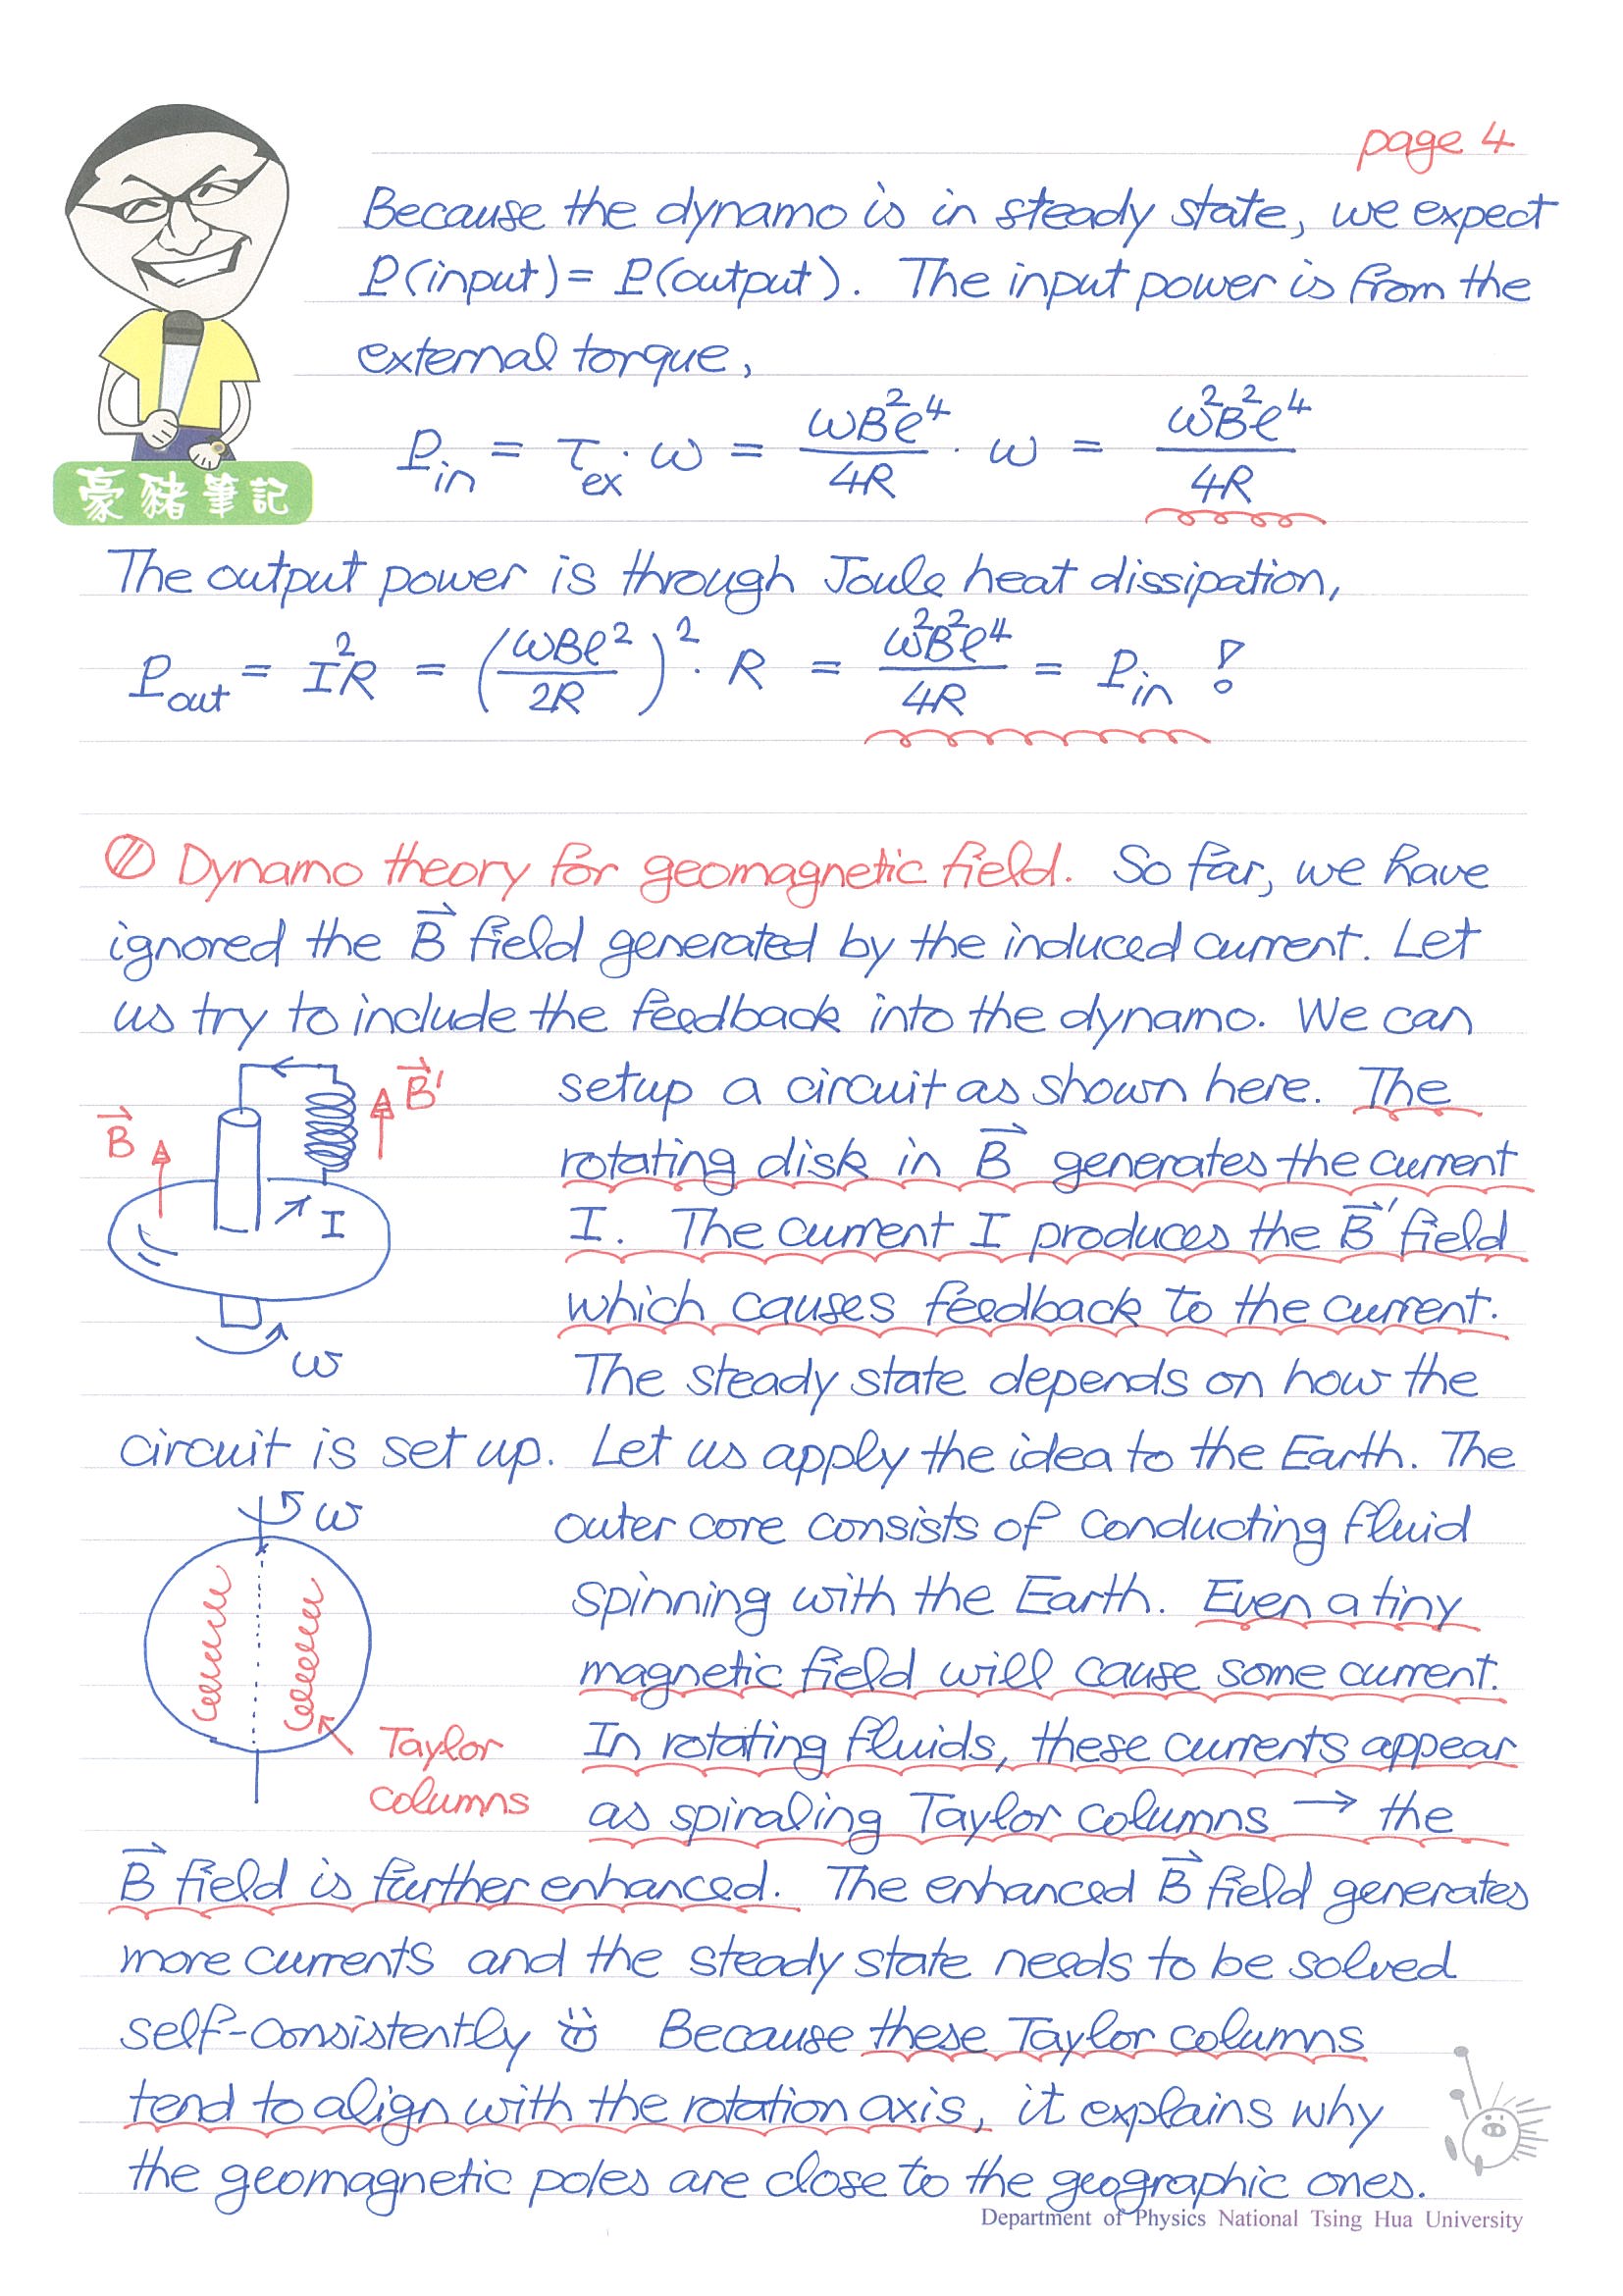 page 4
Because the dynamo is in steady state, we expect
P(input) = P(output). The input power is from the
external torque,
P_in = τ_ex · ω = ωB²ℓ⁴/4R · ω = ω²B²ℓ⁴/4R
豪豬筆記
The output power is through Joule heat dissipation,
P_out = I²R = (ωBℓ²/2R)² · R = ω²B²ℓ⁴/4R = P_in !
Dynamo theory for geomagnetic field. So far, we have
ignored the B⃗ field generated by the induced current. Let
us try to include the feedback into the dynamo. We can
setup a circuit as shown here. The
rotating disk in B⃗ generates the current
I. The current I produces the B⃗' field
which causes feedback to the current.
The steady state depends on how the
B⃗
B⃗'
I
ω
circuit is set up. Let us apply the idea to the Earth. The
outer core consists of conducting fluid
spinning with the Earth. Even a tiny
magnetic field will cause some current.
In rotating fluids, these currents appear
as spiraling Taylor columns → the
ω
Taylor
columns
B⃗ field is further enhanced. The enhanced B⃗ field generates
more currents and the steady state needs to be solved
self-consistently Because these Taylor columns
tend to align with the rotation axis, it explains why
the geomagnetic poles are close to the geographic ones.
Department of Physics National Tsing Hua University